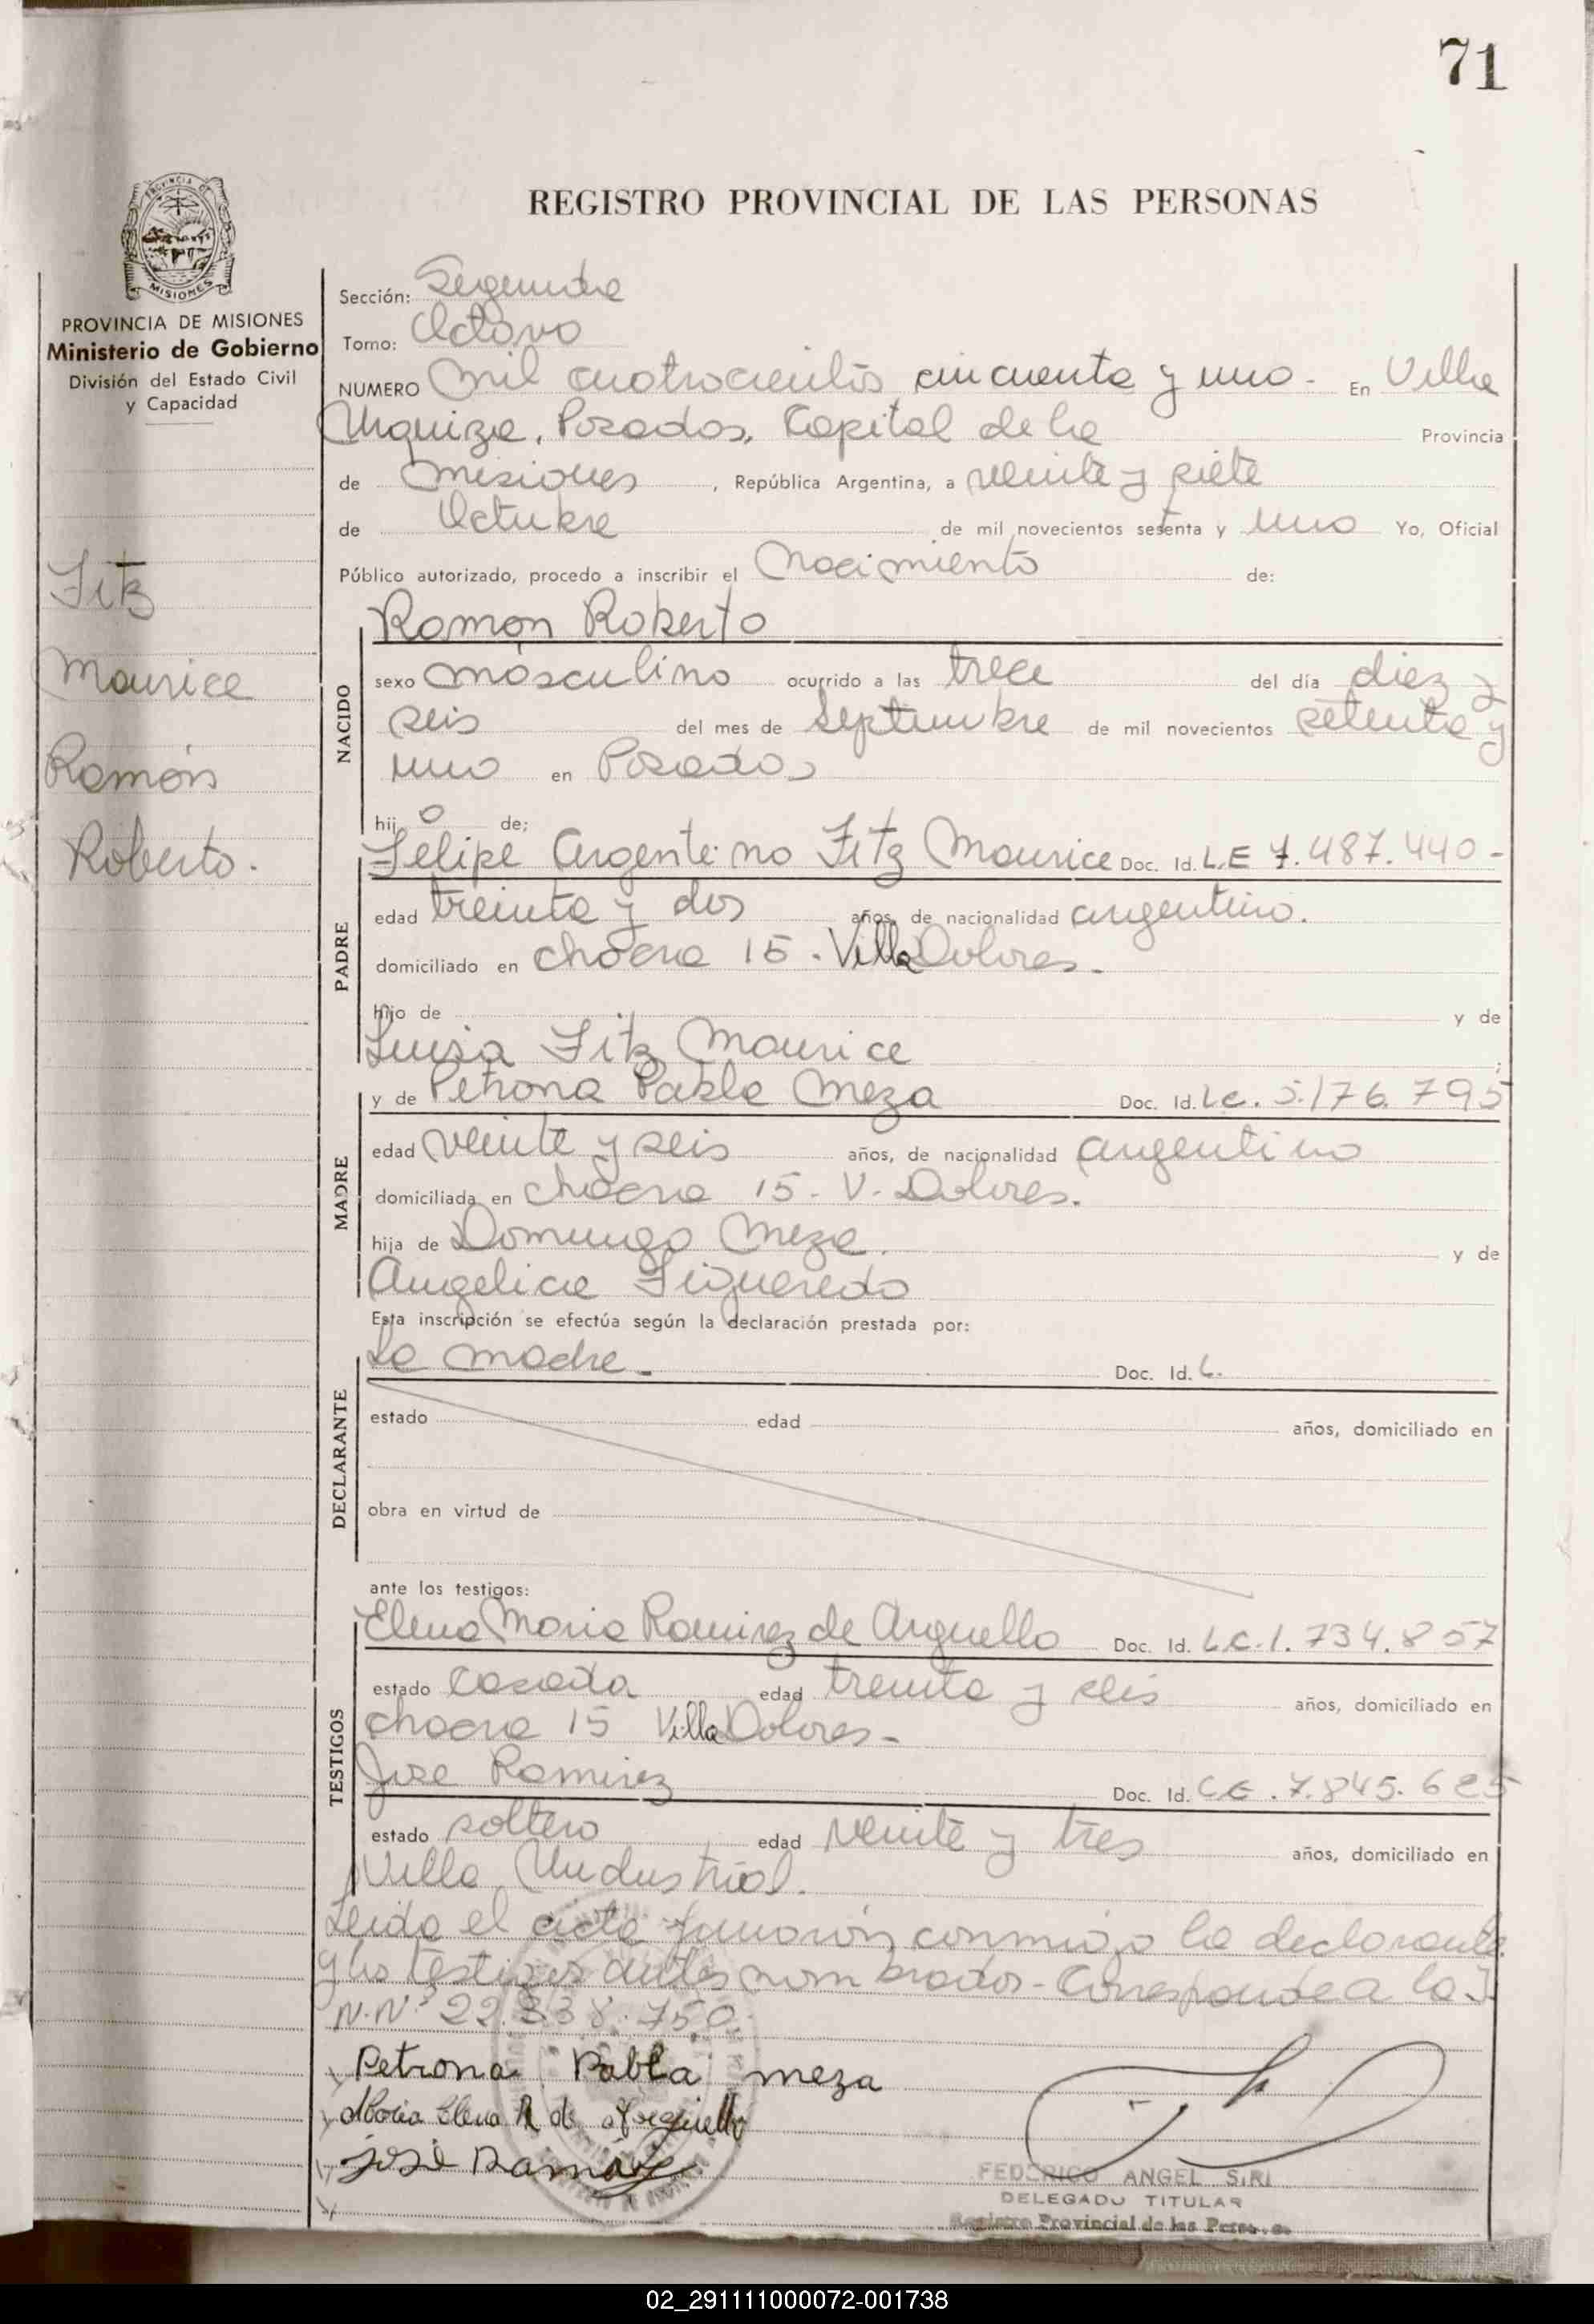 71
REGISTRO PROVINCIAL DE LAS PERSONAS
PROVINCIA DE MISIONES
Ministerio de Gobierno
División del Estado Civil
y Capacidad
Fitz
Maurice
Ramón
Roberto.
Sección: Segunda
Tomo: Octavo
NUMERO Mil cuatrocientos cincuenta y uno - En Villa
Urquiza, Posadas, Capital de la Provincia
de Misiones, República Argentina, a veinte y siete
de Octubre de mil novecientos setenta y uno Yo, Oficial
Público autorizado, procedo a inscribir el Nacimiento de:
NACIDO
Ramón Roberto
sexo masculino ocurrido a las trece del día diez y
seis del mes de Septiembre de mil novecientos setenta y
uno en Posadas
hijo de;
PADRE
Felipe Argentino Fitz Maurice Doc. Id. L.E 7.487.440-
edad treinta y dos años, de nacionalidad argentino.
domiciliado en chacra 15. Villa Dolores.
hijo de y de
Luisa Fitz Maurice
MADRE
y de Petrona Pabla Meza Doc. Id. L.C. 5.176.795
edad veinte y seis años, de nacionalidad argentino
domiciliada en chacra 15. V. Dolores.
hija de Domingo Meza. y de
Angelica Figueredo
Esta inscripción se efectúa según la declaración prestada por:
DECLARANTE
La madre. Doc. Id.
estado edad años, domiciliado en
obra en virtud de
ante los testigos:
TESTIGOS
Elena Maria Ramirez de Arguello Doc. Id. L.C. 1.734.857
estado casada edad treinta y seis años, domiciliado en
chacra 15 Villa Dolores.
Jose Ramirez Doc. Id. 7.845.625
estado soltero edad veinte y tres años, domiciliado en
Villa Industrial.
Leida el acta firmaron conmigo la declarante
y los testigos antes nombrados - Corresponde a la I.
N.Nº 22.338.750.
Petrona Pabla meza
Maria Elena R de Arguello
José Ramirez
FEDERICO ANGEL SIRI
DELEGADO TITULAR
Registro Provincial de las Personas
02_291111000072-001738